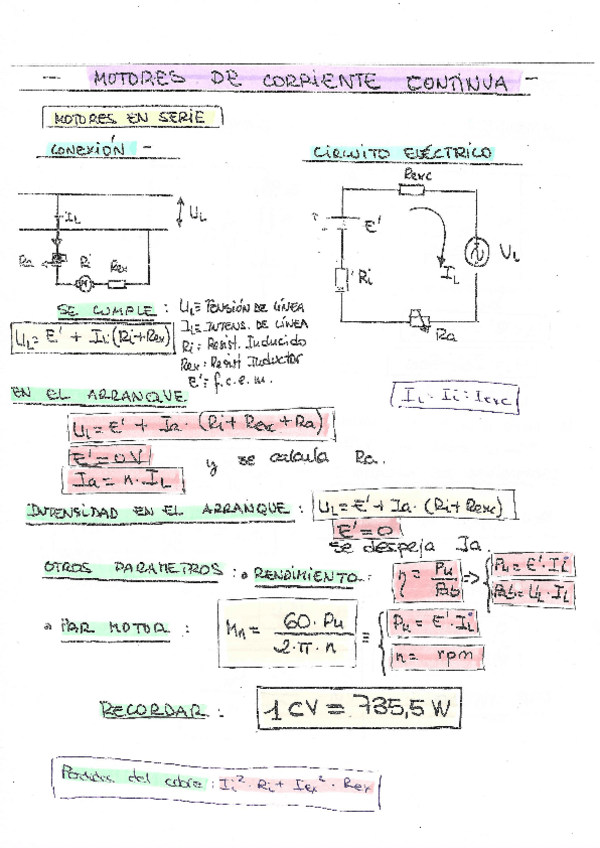 - MOTORES DE CORRIENTE CONTINUA -
MOTORES EN SERIE
CONEXIÓN -
CIRCUITO ELÉCTRICO
Rexc
IL
UL
E'
Ra
Ri
Rex
IL
UL
Ri
Ra
SE CUMPLE : UL = TENSIÓN DE LÍNEA
IL = INTENS. DE LÍNEA
UL = E' + IL·(Ri+Rex)
Ri : Resist. Inducido
Rex : Resist Inductor
E' = f.c.e.m.
EN EL ARRANQUE
IL = Ii = Iexc
UL = E' + Ia · (Ri + Rexc + Ra)
E' = 0V
y se calcula Ra.
Ia = n · IL
INTENSIDAD EN EL ARRANQUE : UL = E' + Ia · (Ri + Rexc)
E' = 0
se despeja Ia.
OTROS PARAMETROS : • RENDIMIENTO : η = Pu/Pab => { Pu = E' · Ii
Pab = UL · IL
• PAR MOTOR : Mn = 60 · Pu / 2 · π · n ≡ { Pu = E' · Ii
n = rpm
RECORDAR : 1 CV = 735,5 W
Perdidas del cobre : Ii² · Ri + Iex² · Rex